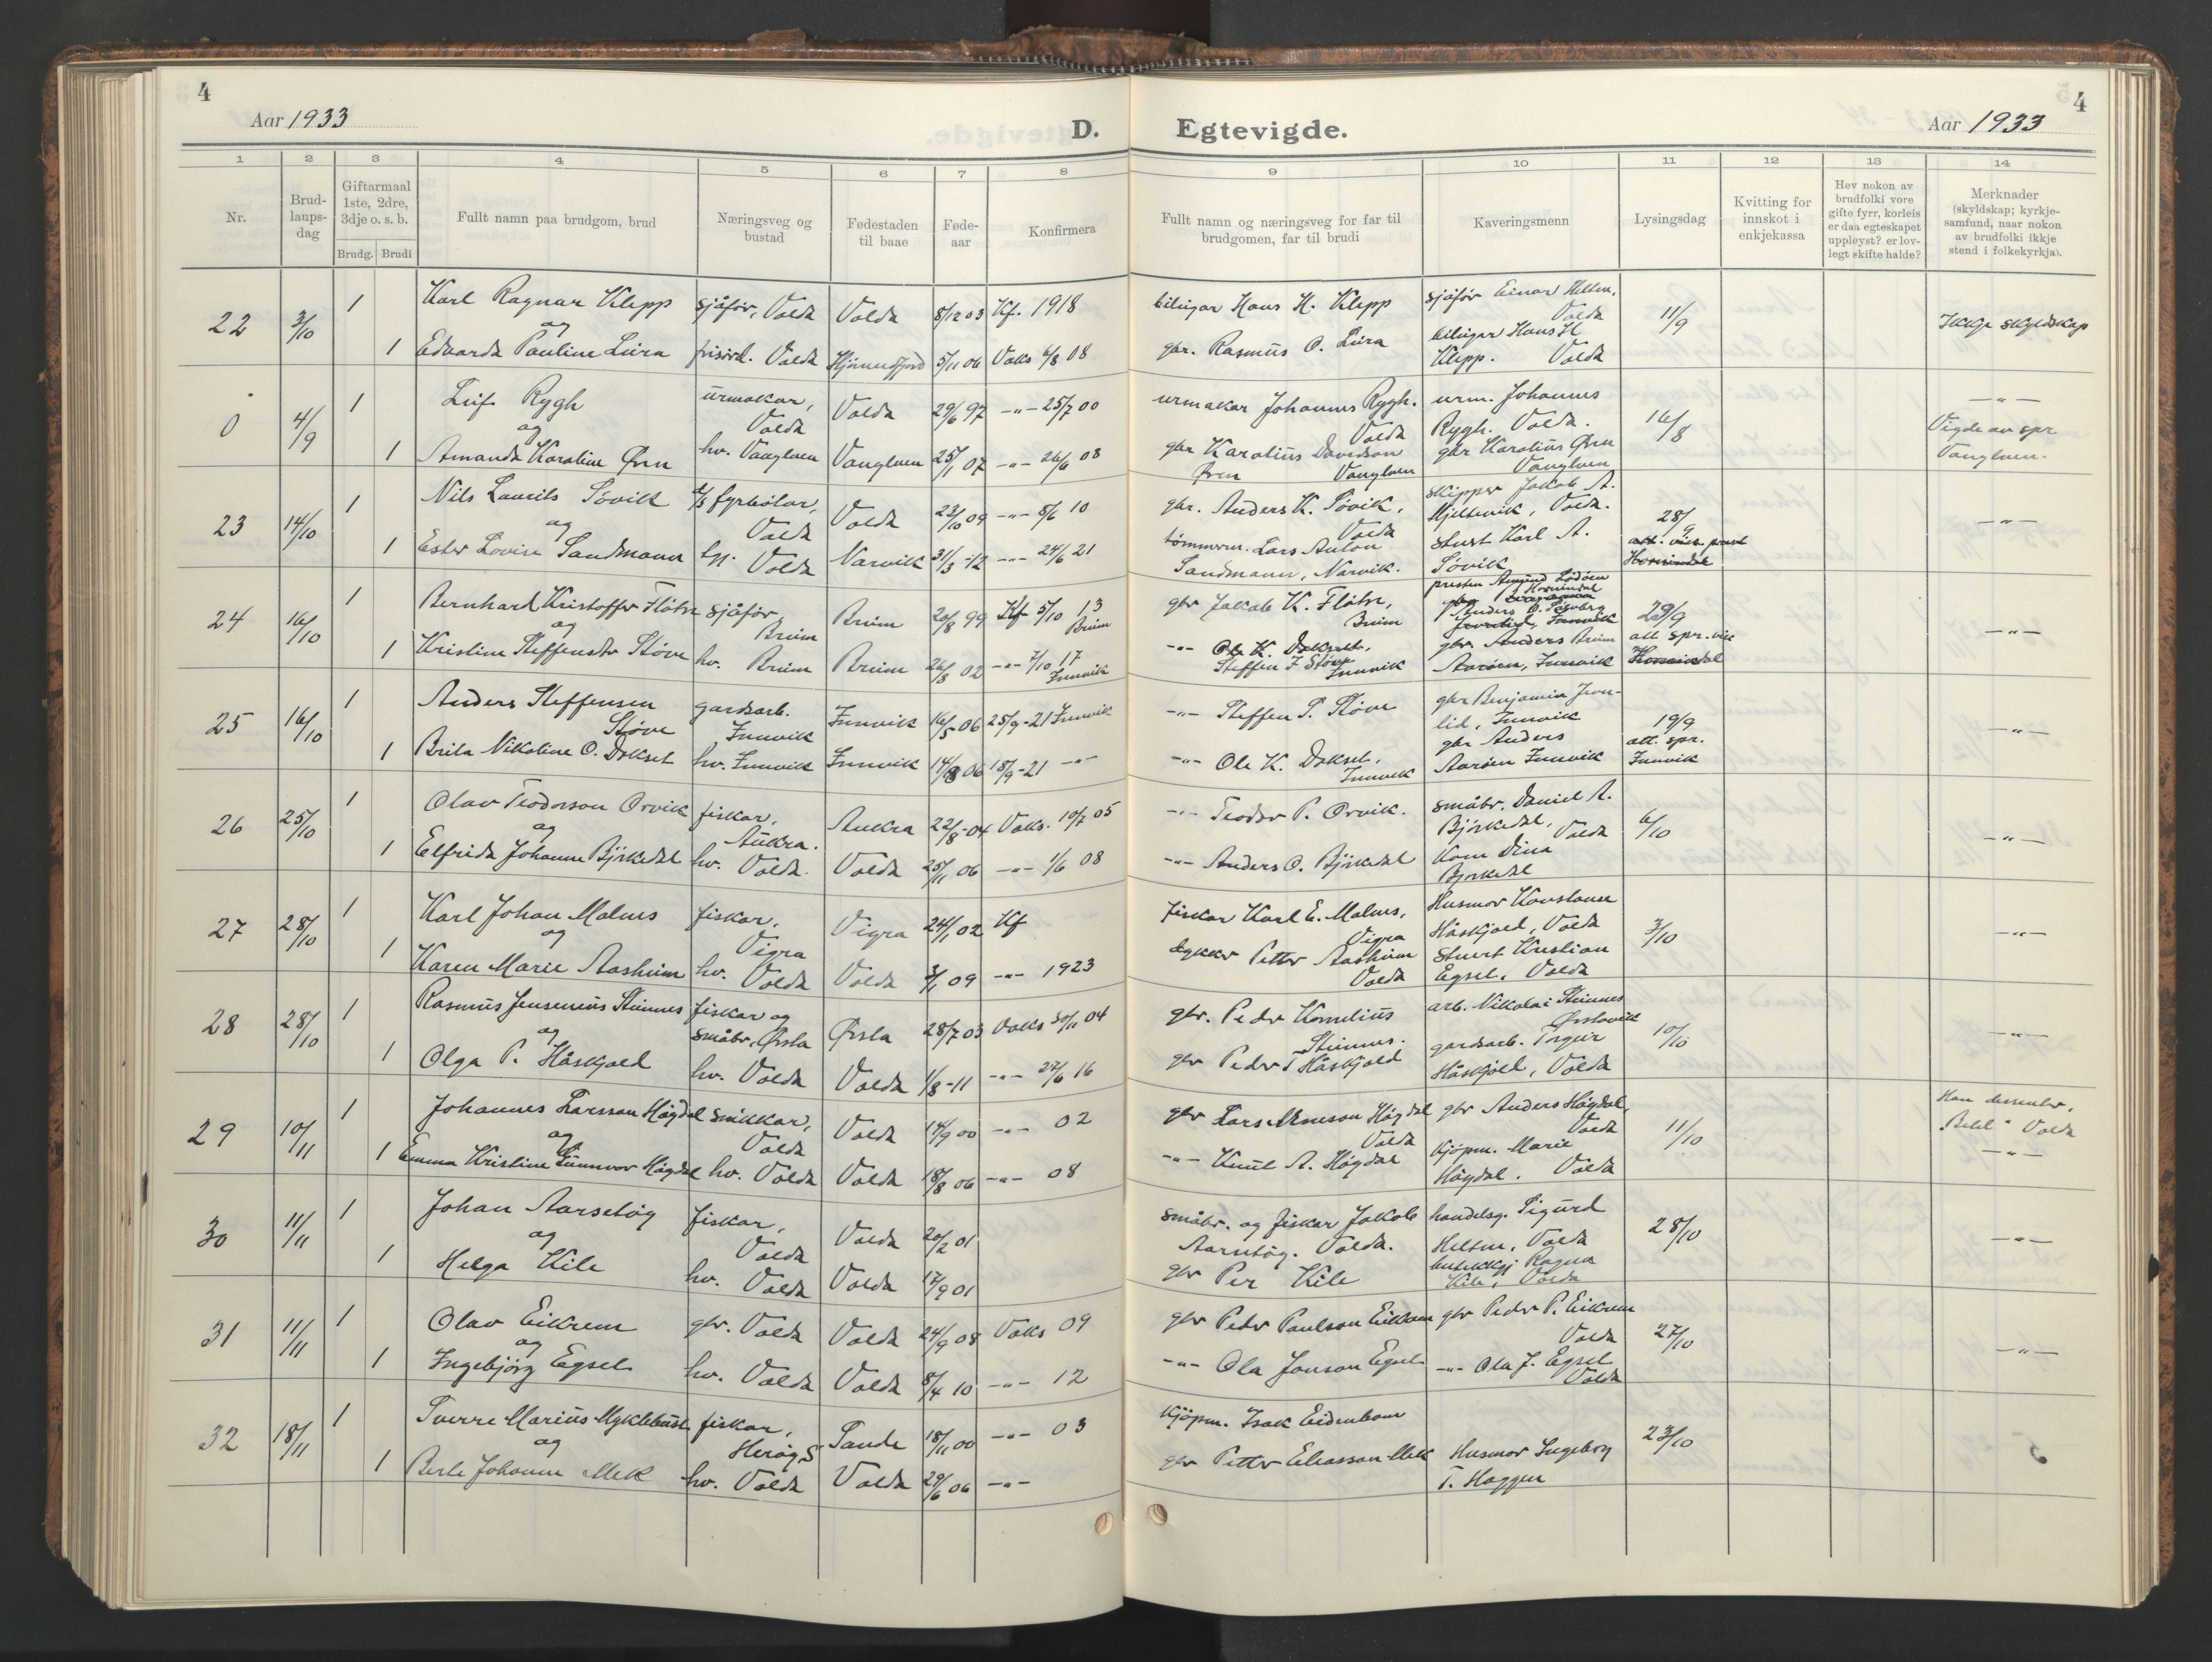 4
Aar 1933
D.
Egtevigde.
Aar 1933
4
1 2 3 4 5 6 7 8 9 10 11 12 13 14
Nr.
Brud-
laups-
dag
Giftarmaal
1ste, 2dre,
3dje o. s. b.
Brudg. Brudi
Fullt namn paa brudgom, brud
Næringsveg og
bustad
Fødestaden
til baae
Føde-
aar
Konfirmera
Fullt namn og næringsveg for far til
brudgomen, far til brudi
Kaveringsmenn
Lysingsdag
Kvitting for
innskot i
enkjekassa
Hev nokon av
brudfolki vore
gifte fyrr, korleis
er daa egteskapet
uppløyst? er lov-
legt skifte halde?
Merknader
(skyldskap; kyrkje-
samfund, naar nokon
av brudfolki ikkje
stend i folkekyrkja).
22 3/10 1 Karl Ragnar Klepp sjåfør, Volda Volda 8/12 03 Kf. 1918 Hans H. Klepp sjåfør Einar
Volda 11/9 Ikkje skyldskap
og
1 Edvarda Pauline Liira Volda Hjørundfjord 5/11 06 Vaks 6/8 08 gbr. Rasmus O. Liira Hans H
Klepp. Volda
0 4/9 1 Leif Rygh urmakar,
Volda Volda 29/6 97 -"- 25/7 00 urmakar Johannes Rygh.
Volda urm. Johannes
Rygh. Volda. 16/8 -"-
Vigde av spr
Vanylven.
og
1 Amanda Karoline Øren hv. Vanylven Vanylven 25/1 07 -"- 26/6 08 gbr Karolius Davidson
Øren Vanylven gbr Karolius Øren
Vanylven
23 14/10 1 Nils Laurits Søvik fyrbøtar,
Volda Volda 22/10 09 -"- 5/6 10 gbr. Anders K. Søvik,
Volda skipper Jakob A.
Mjeltevik, Volda. 28/9 -"-
og
1 Ester Lovise Sandmann Volda Narvik 31/3-12 -"- 24/6 21 tømmerm. Lars Anton
Sandmann, Narvik. stuert Karl A.
Søvik
24 16/10 1 Bernhard Kristoffer Fløtre sjåfør
Brim Brim 20/8 99 Kf 5/10 13
Brim gbr Jakob K. Fløtre,
Brim 29/9 -"-
og
1 Kristine Steffensdtr Støve hv. Brim Brim 26/8 02 -"- 7/10 17
Innvik Steffen J Støve
Innvik gbr. Anders
Aarøen, Innvik att. spr.
25 16/10 1 Anders Steffensen
Støve gardsarb.
Innvik Innvik 16/5 06 25/9-21 Innvik -"- Steffen P. Støve gbr Benjamin Jevn-
lid, Innvik 19/9
att. spr.
Innvik -"-
1 Brita Nikoline O. Dokset hv. Innvik Innvik 14/8 06 18/9-21 -"- -"- Ole K. Dokset,
Innvik gbr Anders
Aarøen Innvik
26 25/10 1 Olav Teodorson Orvik fiskar,
Aukra. Aukra 22/8-04 Vaks. 10/7 05 -"- Teodor P. Orvik. småbr. Daniel A.
Bjørkedal,
Volda 6/10 -"-
og
1 Elfrida Johanne Bjørkedal hv. Volda. Volda 25/11 06 -"- 1/6 08 -"- Anders O. Bjørkedal Kom Dina
Bjørkedal
27 28/10 1 Karl Johan Malnes fiskar,
Vigra Vigra 24/1 02 Kf fiskar Karl E. Malnes,
Vigra Husmor Konstanse
Håskjold, Volda 3/10 -"-
og
1 Karen Marie Aasheim hv. Volda Volda 3/1 09 -"- 1923 dykker Petter Aasheim
Volda stuert Kristian
Egset. Volda
28 28/10 1 Rasmus Jensenius Steinnes fiskar og
småbr, Ørsta Ørsta 28/7 03 Vaks 30/11 04 gbr. Peder Kornelius
Steinnes. arb. Nikolai Steinnes
Ørstavik 10/10 -"-
og
1 Olga P. Håskjold hv. Volda Volda 1/8-11 -"- 27/6 16 gbr Peder T Håskjold gardsarb. Torger
Håskjold, Volda
29 10/11 1 Johannes Larsson Høgdal snikkar,
Volda Volda 14/9 00 -"- 02 gbr Lars Høgdal
Volda gbr Anders Høgdal,
Volda 11/10 Han dissenter,
"Betel" Volda
-"-
og
1 Emma Kristine Gunnvor Høgdal hv. Volda Volda 18/8 06 -"- 08 -"- Knut A. Høgdal kjøpm. Marie
Høgdal. Volda
30 11/11 1 Johan Aarsetøy fiskar,
Volda Volda 20/2 01 småbr. og fiskar Jakob
Aarsetøy. Volda. handelsg. Sigurd
Volda 28/10 -"-
og
1 Helga Kile hv. Volda Volda 17/9 01 gbr Per Kile Ragna
Kile, Volda
31 11/11 1 Olav Eikrem gbr. Volda Volda 24/9 08 Vaks 09 gbr Peder Paulson Eikrem gbr Peder P. Eikrem
Volda 27/10 -"-
og
1 Ingebjørg Egset hv. Volda Volda 8/4 10 -"- 12 -"- Ola Jonson Egset -"- Ola J. Egset
Volda
32 18/11 1 Sverre Marius Myklebust fiskar,
Herøy S Sande 18/11 00 -"- 03 kjøpm. Isak Eidenbom 23/10
og
1 Berte Johanne Mek hv. Volda Volda 29/6 06 -"- gbr Petter Eliasson Mek Husmor Ingeborg
T. Haggen